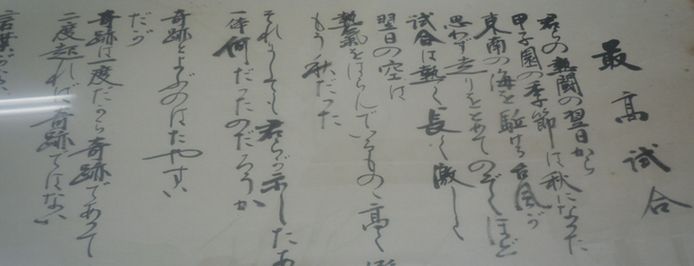 最高試合
君らの熱闘の翌日から
甲子園の季節は秋になった
東南の海を駈ける台風が
思わず走りをとめてのぞくほど
試合は熱く長く激しく
翌日の空は
熱気をはらんでいるものの高く
もう秋だった
それにしても君らが示したあ
一体何だったのだろうか
奇跡とよぶのはたやすい
だが
奇跡は一度だから奇跡であって
二度起れば奇跡ではない
言葉